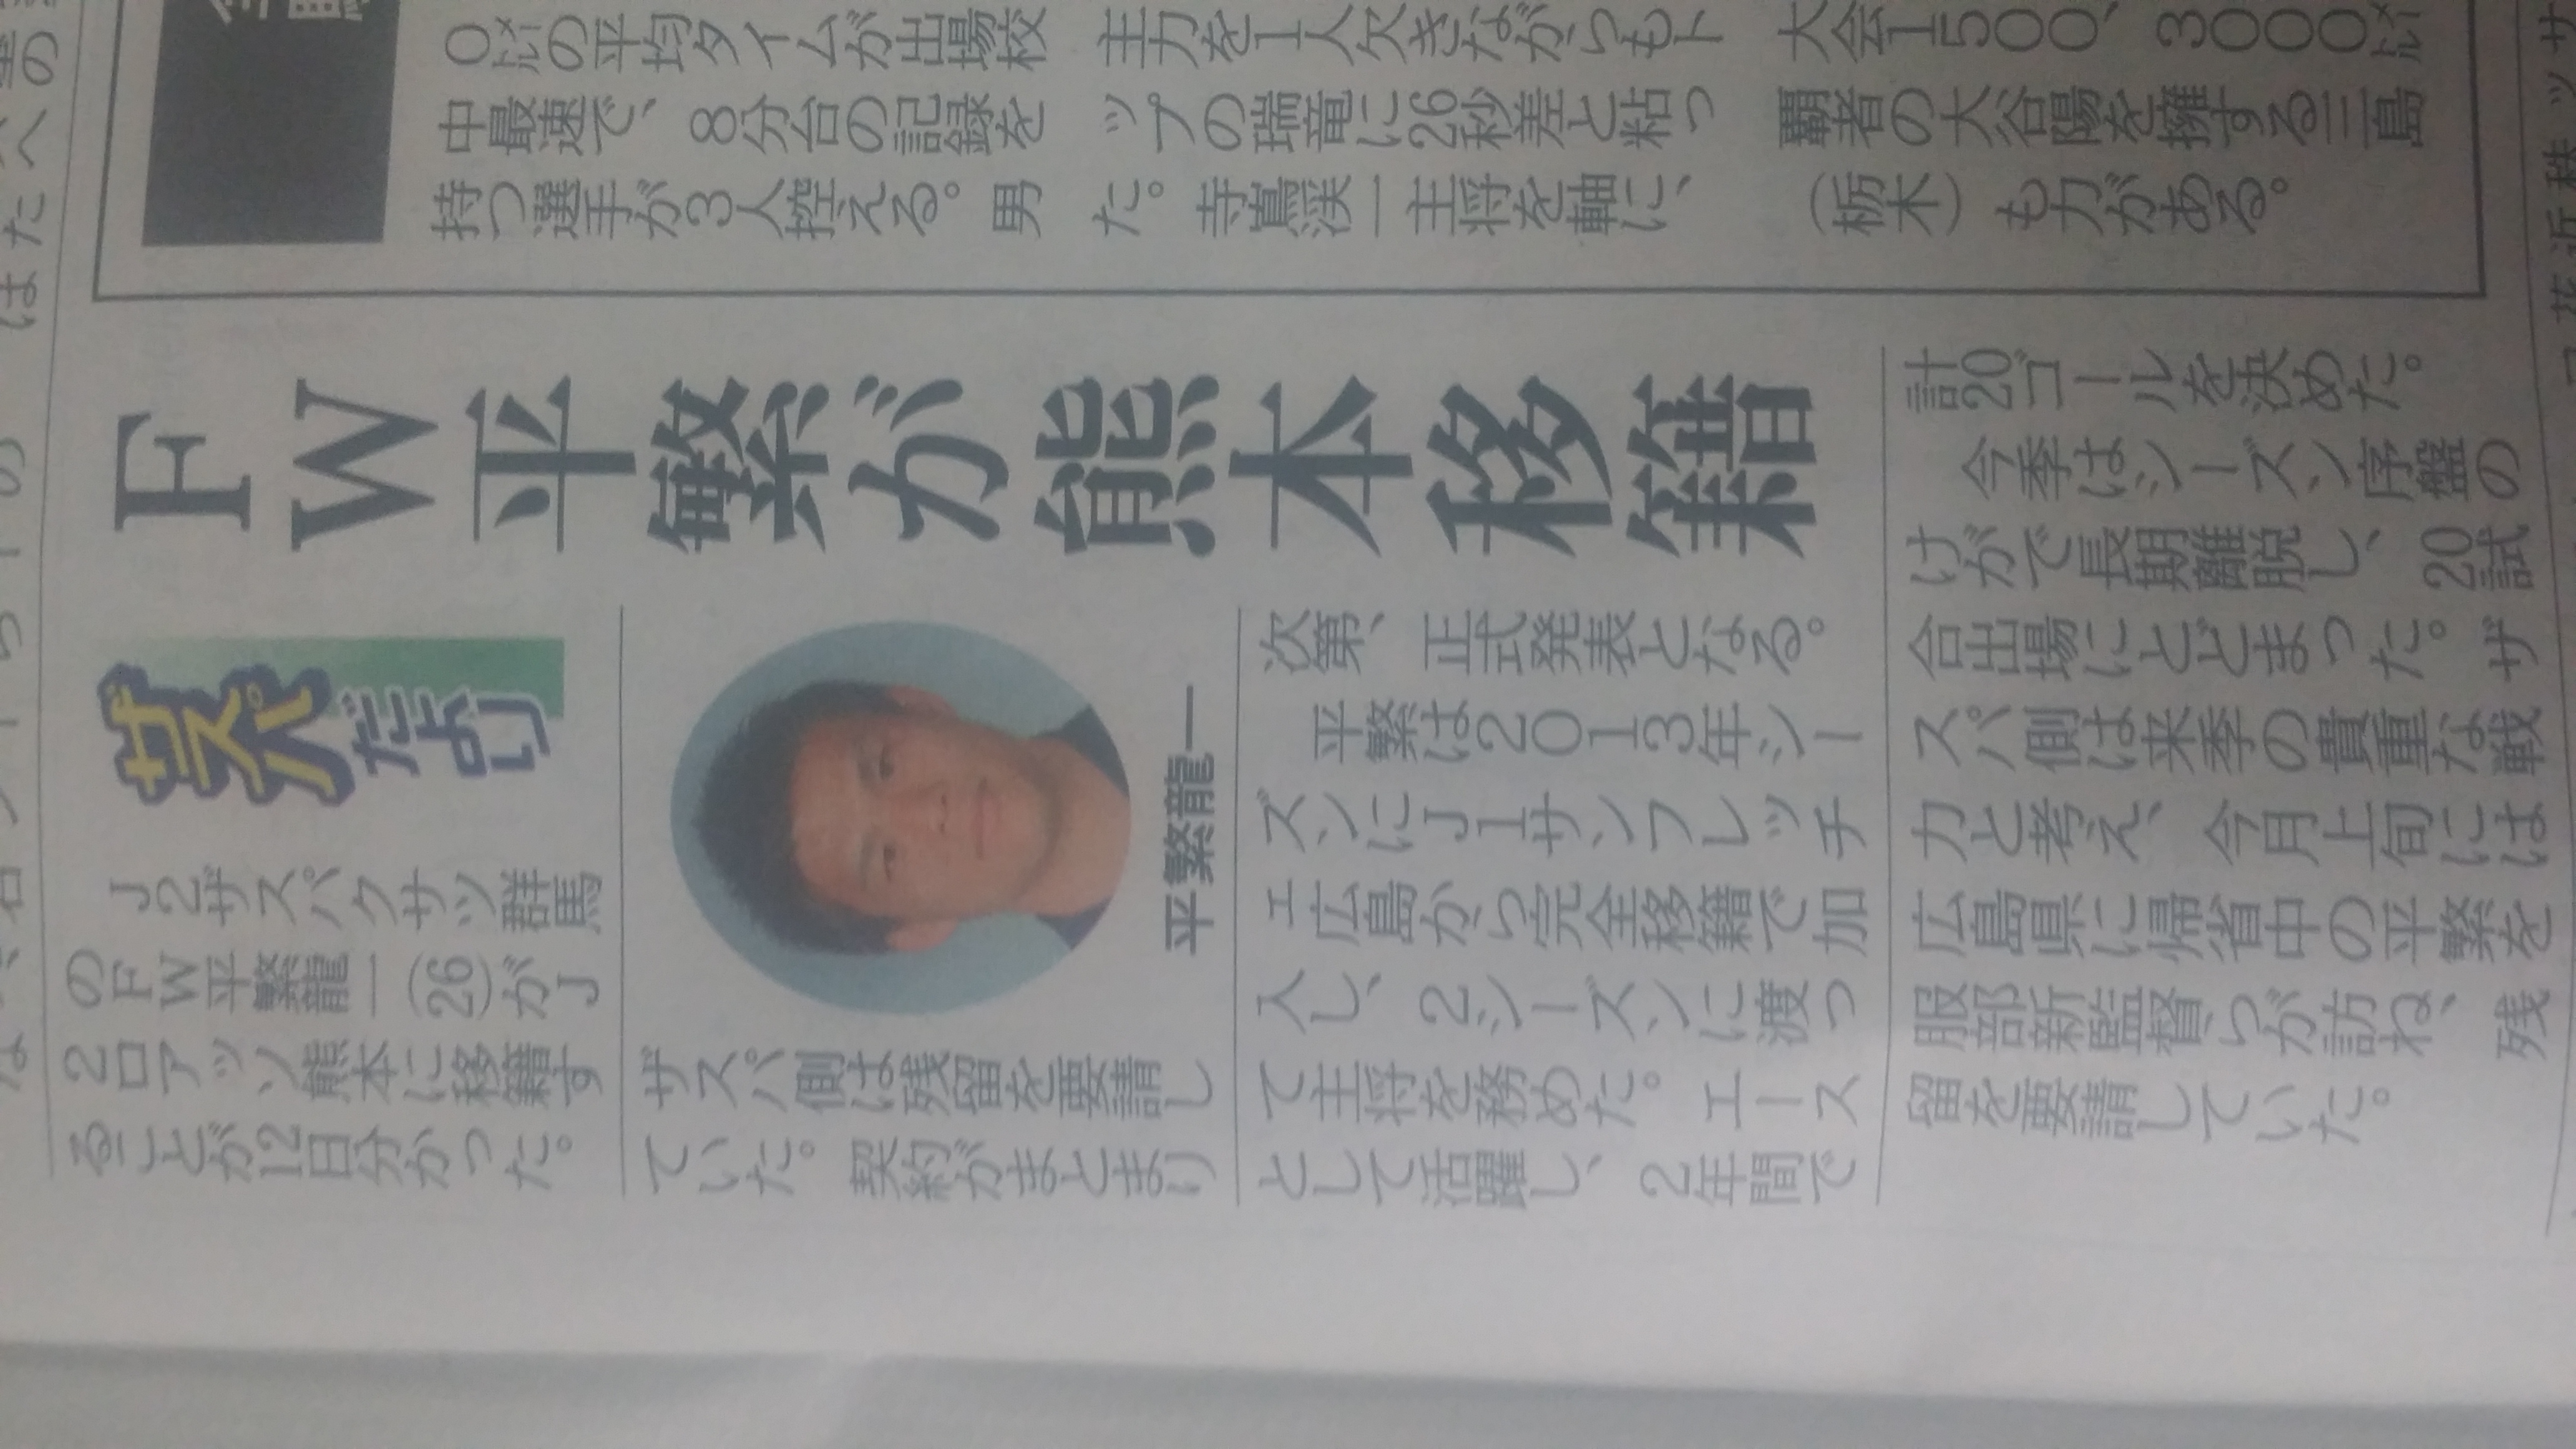 0㍍の平均タイムが出場校
中最速で、8分台の記録を
持つ選手が3人控える。男
主力を1人欠きながらもト
ップの瑞竜に26秒差と粘っ
た。寺嶌渓一主将を軸に、
大会1500、3000㍍
覇者の大谷陽を擁する三島
（栃木）も力がある。
FW平繁が熊本移籍
ザスパ
だより
J2ザスパクサツ群馬
のFW平繁龍一（26）がJ
2ロアッソ熊本に移籍す
ることが12日分かった。
平繁龍一
ザスパ側は残留を要請し
ていた。契約がまとまり
次第、正式発表となる。
平繁は2013年シー
ズンにJ1サンフレッチ
ェ広島から完全移籍で加
入し、2シーズンに渡っ
て主将を務めた。エース
として活躍し、2年間で
計20ゴールを決めた。
今季はシーズン序盤の
けがで長期離脱し、20試
合出場にとどまった。ザ
スパ側は来季の貴重な戦
力と考え、今月上旬には
広島県に帰省中の平繁を
服部新監督らが訪ね、残
留を要請していた。